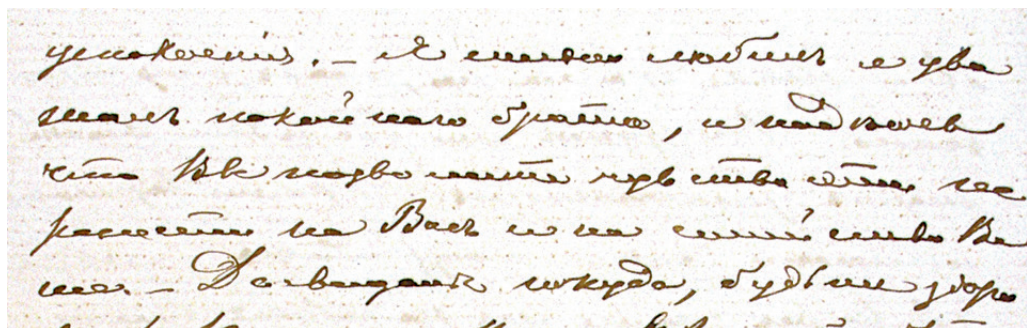 успокоенія. – Я любилъ и ува
жалъ покойнаго брата, и надѣюсь
что Вы позволите чувства эти пе
ренести на Васъ и на семейство Ва
ше. – До свиданія покуда, будьте здоро